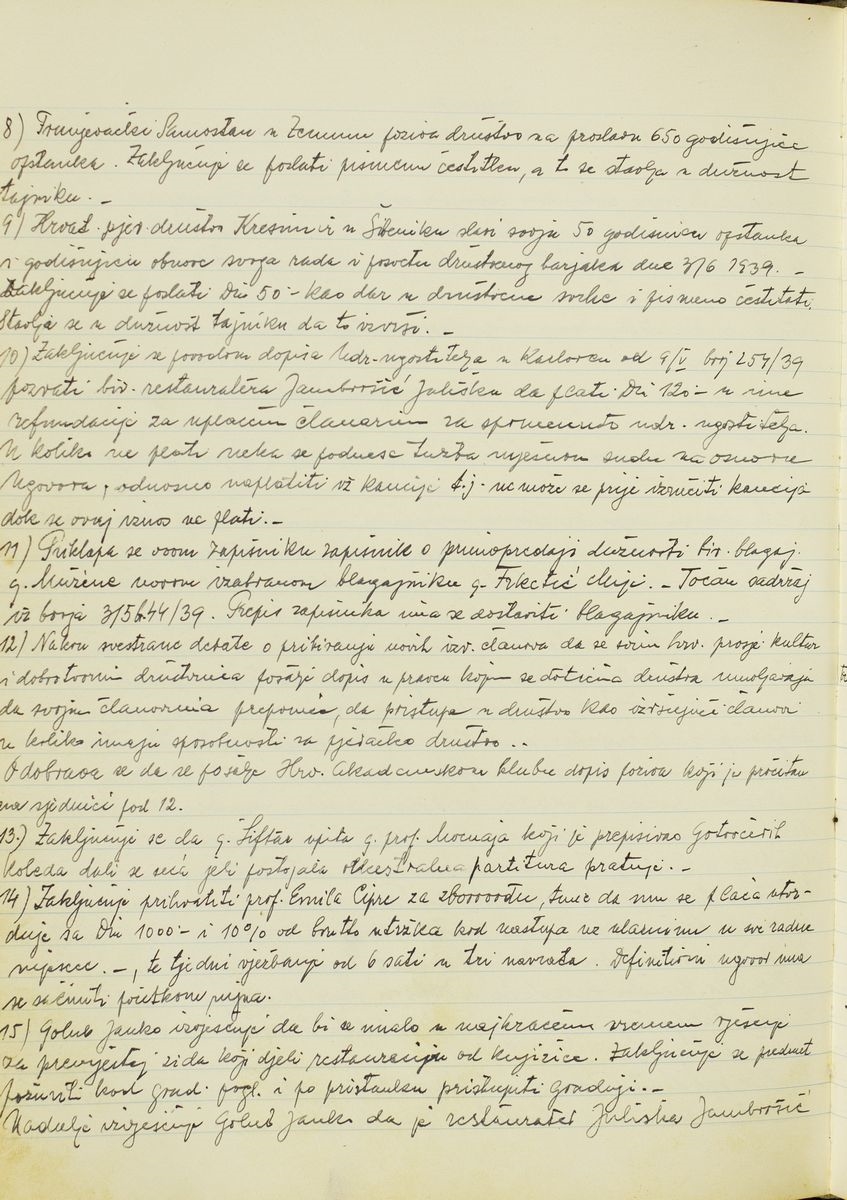 8) Franjevački Samostan u Zemunu poziva društvo na proslavu 650 godišnjice
opstanka. Zaključuje se poslati pismenu čestitku, a to se stavlja u dužnost
tajniku. _
9) Hrvat. pjev. društvo Krešimir u Šibeniku slavi svoju 50 godišnicu opstanka
i godišnjicu obnove svoga rada i posvetu društvenog barjaka dne 3/6 1939. _
Zaključuje se poslati Din 50.- kao dar u društvene svrhe i pismeno čestitati.
Stavlja se u dužnost tajniku da to izvrši. _
10) Zaključuje se povodom dopisa Udr. ugostitelja u Karlovcu od 9/V broj 254/39
pozvati biv. restauratera Jambrošić Juliška da plati Din 120.- u ime
refundacije za uplaćenu članarinu za spomenuto udr. ugostitelja.
U koliko ne plati neka se podnese tužba mjesnom sudu na osnovu
Ugovora, odnosno naplatiti iz kaucije t.j. ne može se prije izručiti kaucija
dok se ovaj iznos ne plati. _
11) Priklapa se ovom zapisniku zapisnik o primopredaji dužnosti biv. blagaj.
g. Mužine novom izabranom blagajniku g. Frketić Miji. _ Točan sadržaj
iz broja 3/5644/39. Prepis zapisnika ima se dostaviti blagajniku. _
12) Nakon svestrane debate o pribiranju novih izv. članova da se svim hrv. prosv. kultur
i dobrotvornim društvima pošalje dopis u pravcu kojim se dotična društva umoljavaju
da svojim članovima preporuče, da pristupe u društvo kao izvršujući članovi
u koliko imaju sposobnosti za pjevačko društvo..
Odobrava se da se pošalje Hrv. Akademskom klubu dopis poziva koji je pročitan
na sjednici pod 12.
13.) Zaključuje se da g. Šiftar upita g. prof. Mocnaja koji je prepisivao Gotovčevih
koleda dali se sjeća jeli postojala orkestralna partitura pratnje. _
14) Zaključuje prihvatiti prof. Emila Cipre za zborovođu, time da mu se plaća utvr-
đuje sa Din 1000.- i 10% od brutto utržka kod nastupa uz ulazninu u sve radne
mjesece. _, te tjedni vježbanje od 6 sati u tri navrata. Definitivni ugovor ima
se sačiniti početkom rujna.
15) Golub Janko izvješćuje da bi se imalo u najkraćem vremenu rješenje
za premještaj zida koji djeli restauraciju od knjižice. Zaključuje se predmet
požuriti kod grad. pogl. i po pristanku pristupiti gradnji. _
Nadalje izvješćuje Golub Janko da je restaurater Juliška Jambrošić